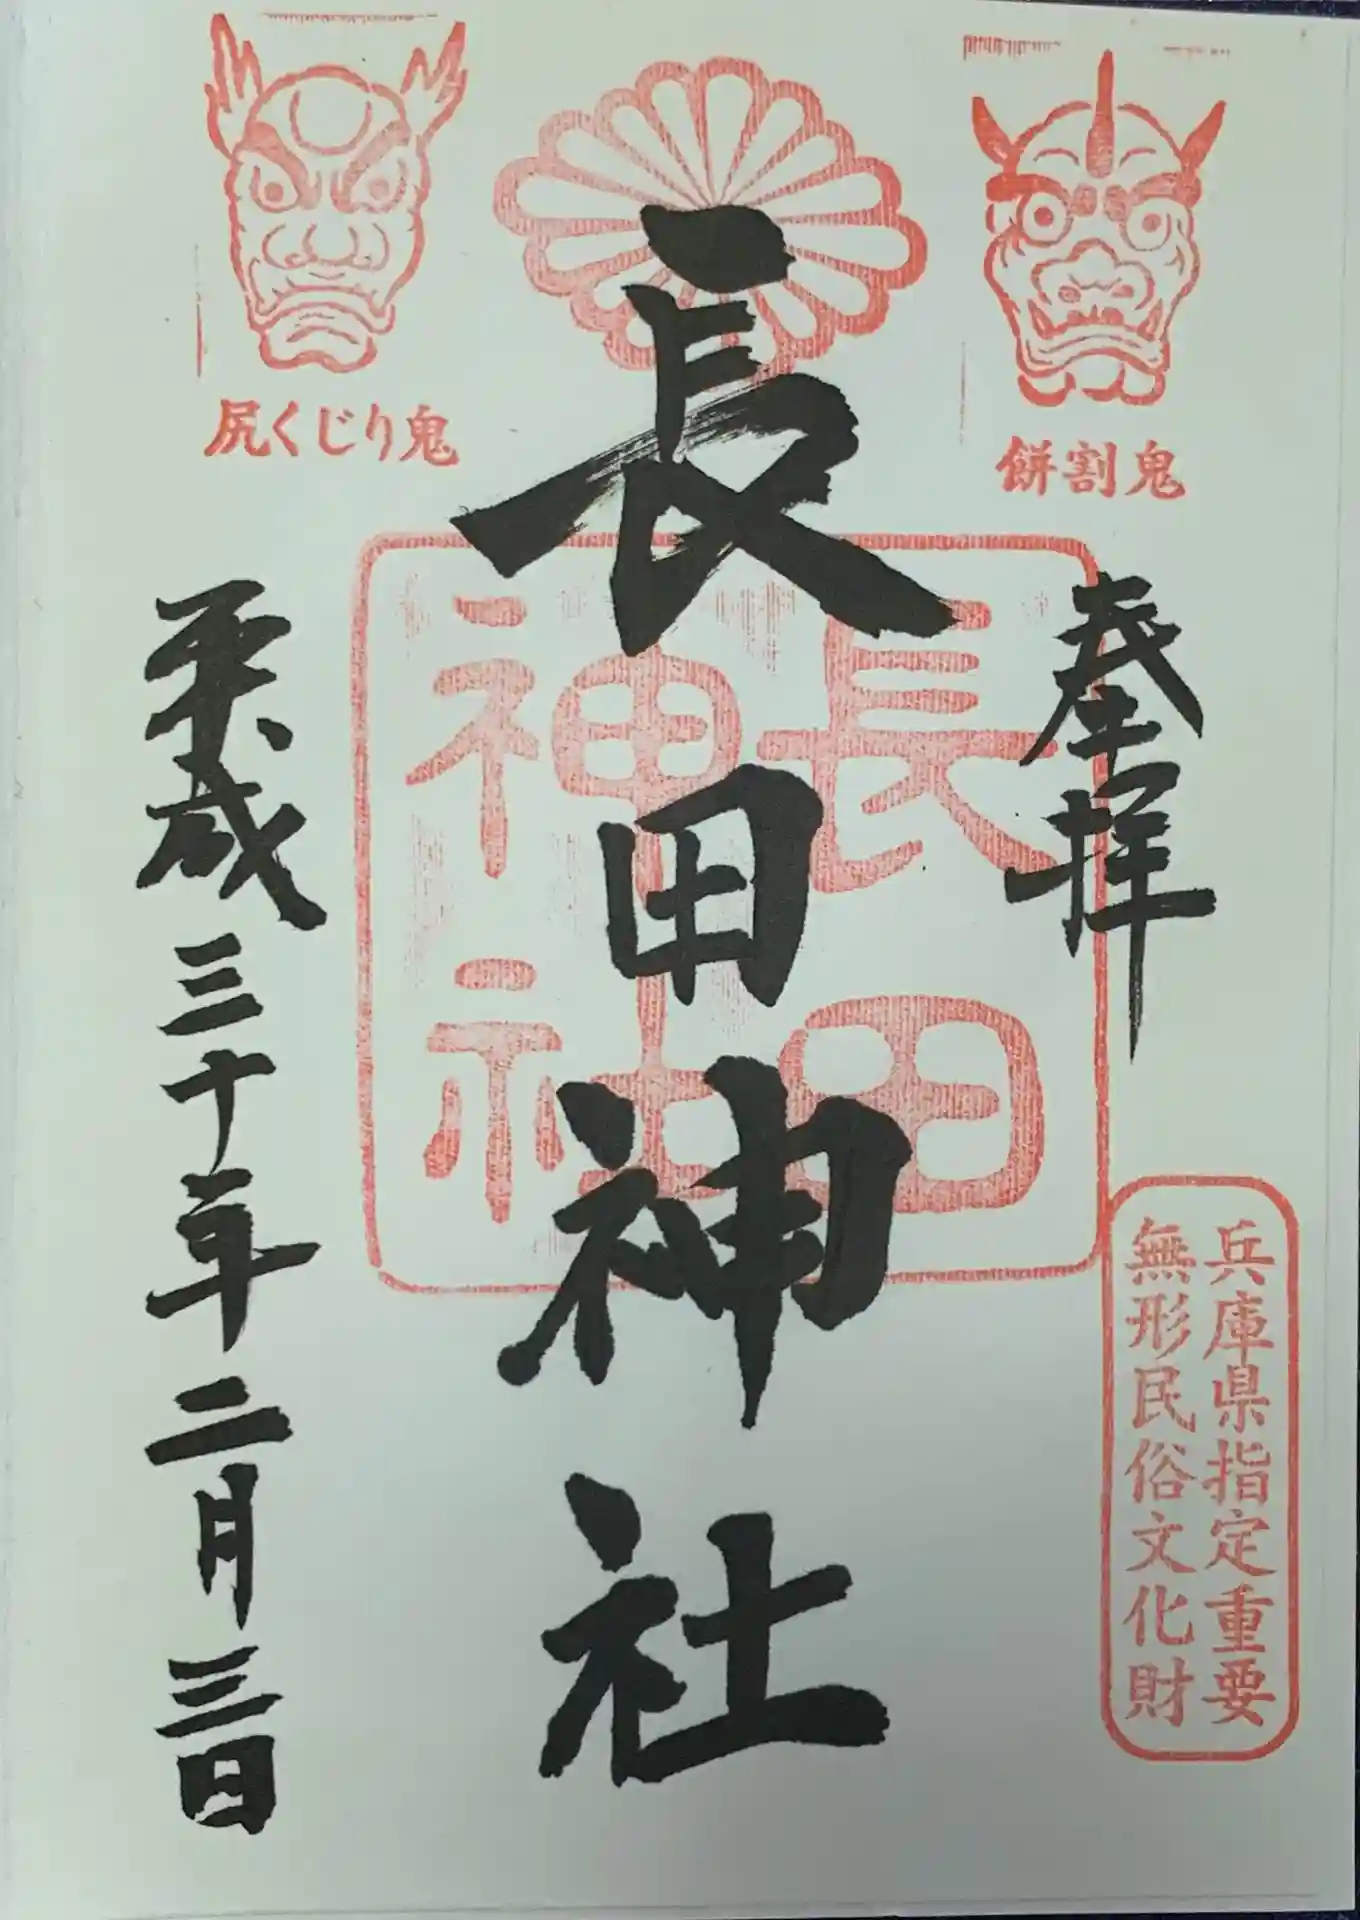 餅割鬼
尻くじり鬼
奉拝
兵庫県指定重要
無形民俗文化財
長田神社
長田
神社
平成三十年二月三日